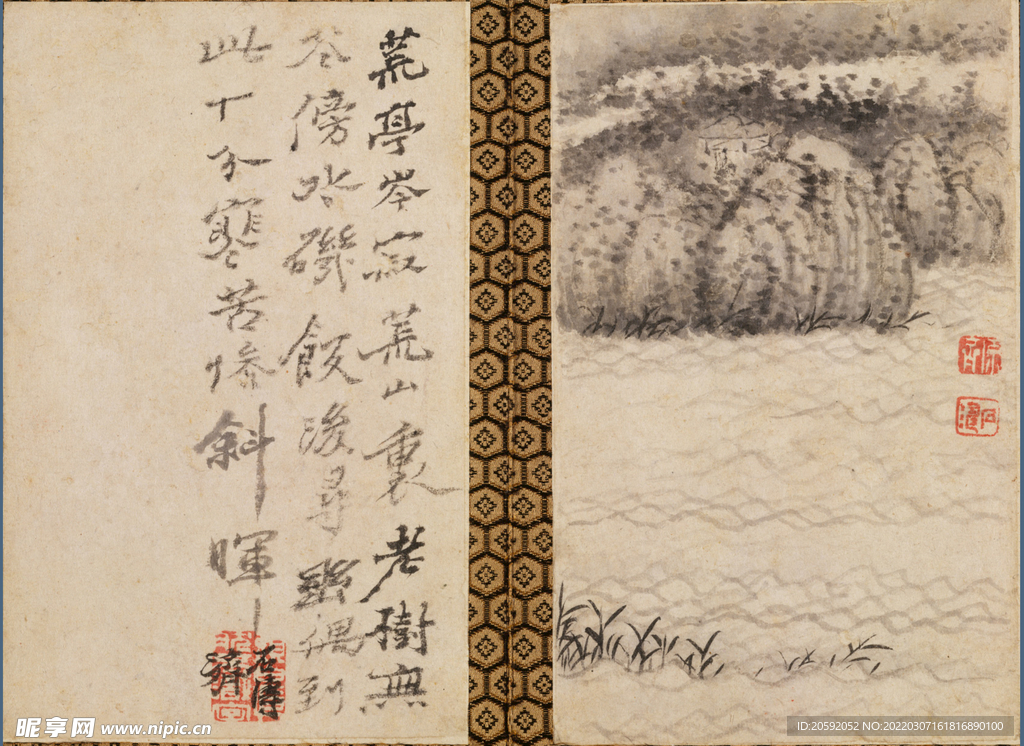 荒亭岑寂荒山裏老樹無
花傍水磯飯後尋幽偶到
此十分寒苦惨斜暉
石濤
濟
昵享网 www.nipic.cn
ID:20592052 NO:20220307161816890100